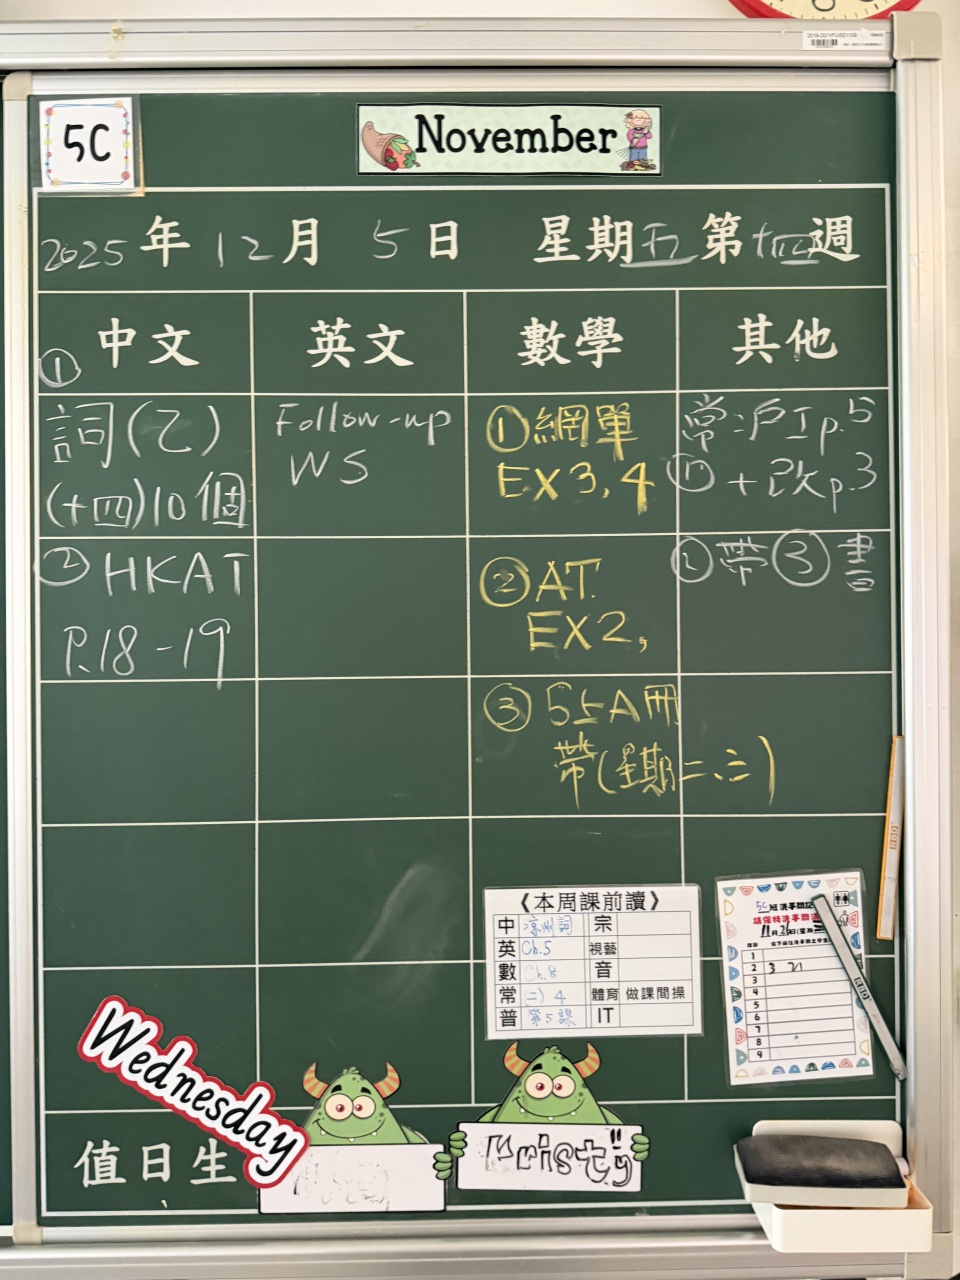 5C
November
2025年12月5日 星期五第十四週
中文 英文 數學 其他
①
詞(乙)
(十四)10個
② HKAT
P.18-19
Follow-up
WS
①網單
EX 3, 4
② AT.
EX 2,
③ 5上A冊
帶(星期二、三)
常:沪工p.5
① +改p.3
②帶③書
《本周課前讀》
中 涼州詞 宗
英 Ch.5 視藝
數 Ch.8 音
常 二) 4 體育 做課間操
普 第5課 IT
5C班洗手間記
請保持洗手間
11月26日(星期三
1
2 3 21
3
4
5
6
7
8
9
Wednesday
值日生
Kristy